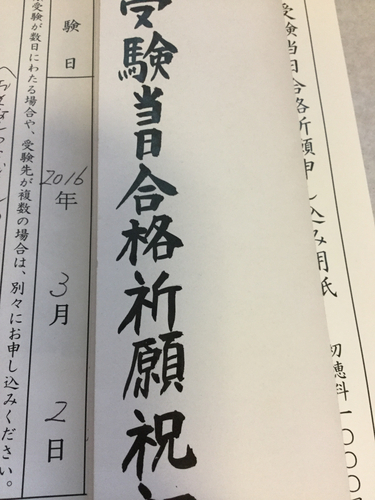 受験当日合格祈願申し込み用紙
初穂料一〇〇〇
受験当日合格祈願祝
験日
2016年3月2日
受験が数日にわたる場合や、受験先が複数の場合は、別々にお申し込みください。